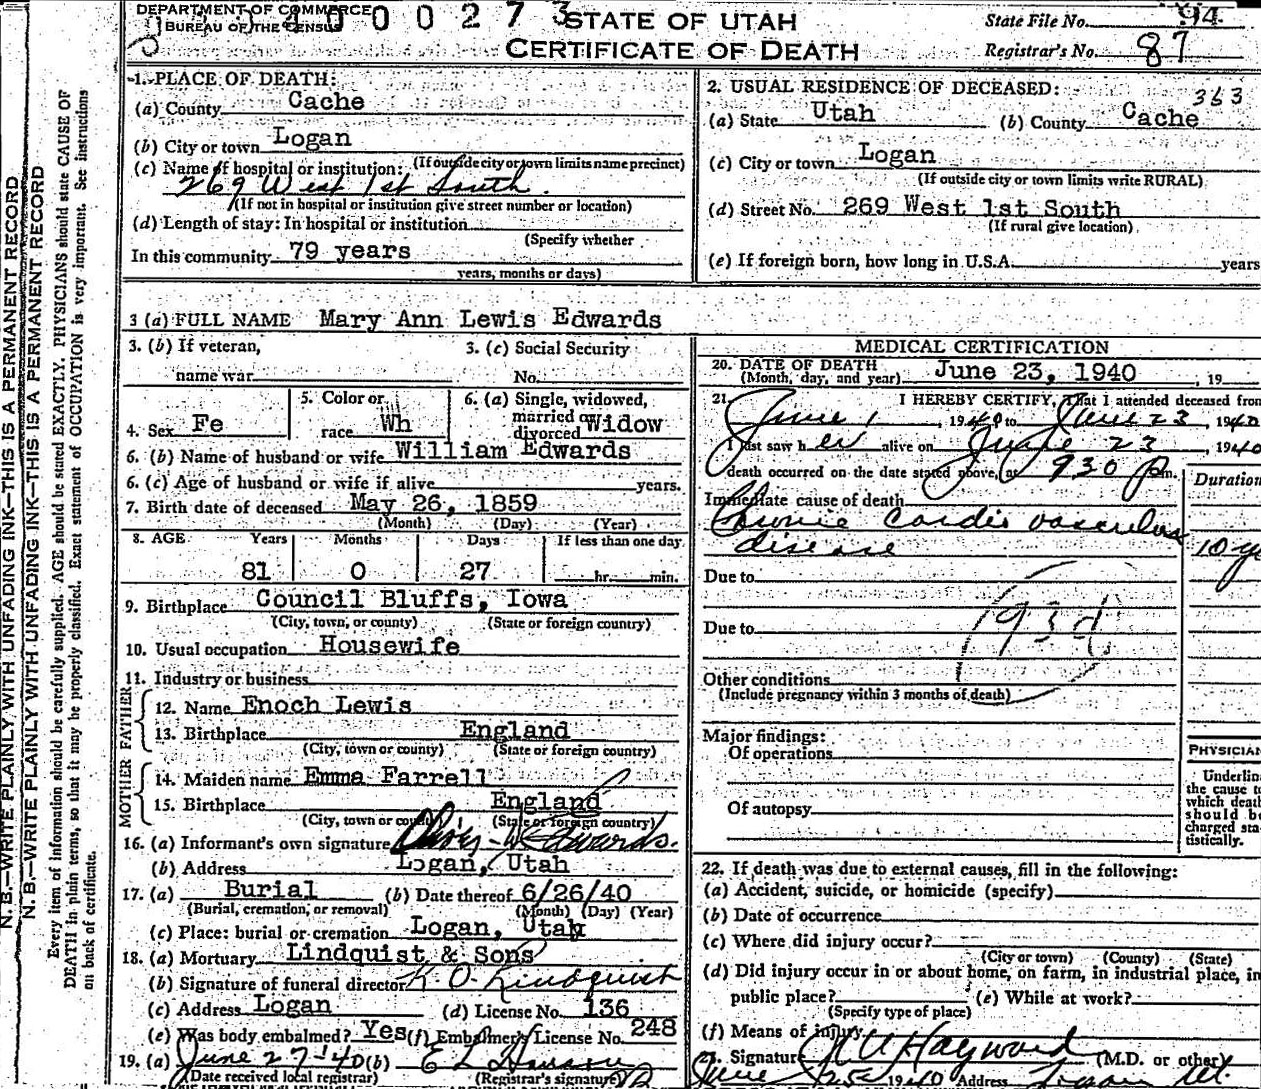 DEPARTMENT OF COMMERCE
BUREAU OF THE CENSUS
4 0 0 0 2 7 3
STATE OF UTAH
CERTIFICATE OF DEATH
State File No. 94
Registrar's No. 87
N. B.—WRITE PLAINLY WITH UNFADING INK—THIS IS A PERMANENT RECORD
N. B.—WRITE PLAINLY WITH UNFADING INK—THIS IS A PERMANENT RECORD
Every item of information should be carefully supplied. AGE should be stated EXACTLY. PHYSICIANS should state CAUSE OF
DEATH in plain terms, so that it may be properly classified. Exact statement of OCCUPATION is very important. See instructions
on back of certificate.
1. PLACE OF DEATH:
(a) County Cache
(b) City or town Logan
(If outside city or town limits name precinct)
(c) Name of hospital or institution:
269 West 1st South.
(If not in hospital or institution give street number or location)
(d) Length of stay: In hospital or institution
(Specify whether
In this community 79 years
years, months or days)
2. USUAL RESIDENCE OF DECEASED:
363
(a) State Utah (b) County Cache
(c) City or town Logan
(If outside city or town limits write RURAL)
(d) Street No. 269 West 1st South
(If rural give location)
(e) If foreign born, how long in U.S.A. years
3 (a) FULL NAME Mary Ann Lewis Edwards
3. (b) If veteran,
name war
3. (c) Social Security
No.
4. Sex Fe
5. Color or
race Wh
6. (a) Single, widowed,
married or
divorced Widow
6. (b) Name of husband or wife William Edwards
6. (c) Age of husband or wife if alive years.
7. Birth date of deceased May 26, 1859
(Month) (Day) (Year)
8. AGE Years Months Days If less than one day
81 0 27 hr. min.
9. Birthplace Council Bluffs, Iowa
(City, town, or county) (State or foreign country)
10. Usual occupation Housewife
11. Industry or business
FATHER
12. Name Enoch Lewis
13. Birthplace England
(City, town or county) (State or foreign country)
MOTHER
14. Maiden name Emma Farrell
15. Birthplace England
(City, town or county) (State or foreign country)
16. (a) Informant's own signature Edwards.
(b) Address Logan, Utah
17. (a) Burial (b) Date thereof 6/26/40
(Burial, cremation, or removal) (Month) (Day) (Year)
(c) Place: burial or cremation Logan, Utah
18. (a) Mortuary Lindquist & Sons
(b) Signature of funeral director K. O. Lindquist
(c) Address Logan (d) License No. 136
(e) Was body embalmed? Yes (f) Embalmer's License No. 248
19. (a) June 27-'40 (b) E L Hanson
(Date received local registrar) (Registrar's signature)
MEDICAL CERTIFICATION
20. DATE OF DEATH
(Month, day, and year) June 23, 1940, 19
21. I HEREBY CERTIFY, That I attended deceased from
June 1, 1940 to June 23 1940
I last saw her alive on June 23 1940
death occurred on the date stated above, at 930 pm.
Duration
Immediate cause of death
Chronic cardio vascular
disease 10 y
Due to
Due to
Other conditions
(Include pregnancy within 3 months of death)
Major findings:
Of operations
Of autopsy
PHYSICIAN
Underline
the cause to
which death
should be
charged sta-
tistically.
22. If death was due to external causes, fill in the following:
(a) Accident, suicide, or homicide (specify)
(b) Date of occurrence
(c) Where did injury occur?
(City or town) (County) (State)
(d) Did injury occur in or about home, on farm, in industrial place, in
public place? (e) While at work?
(Specify type of place)
(f) Means of injury
23. Signature Hayward (M.D. or other)
June 25 1940 Address Logan Ut.